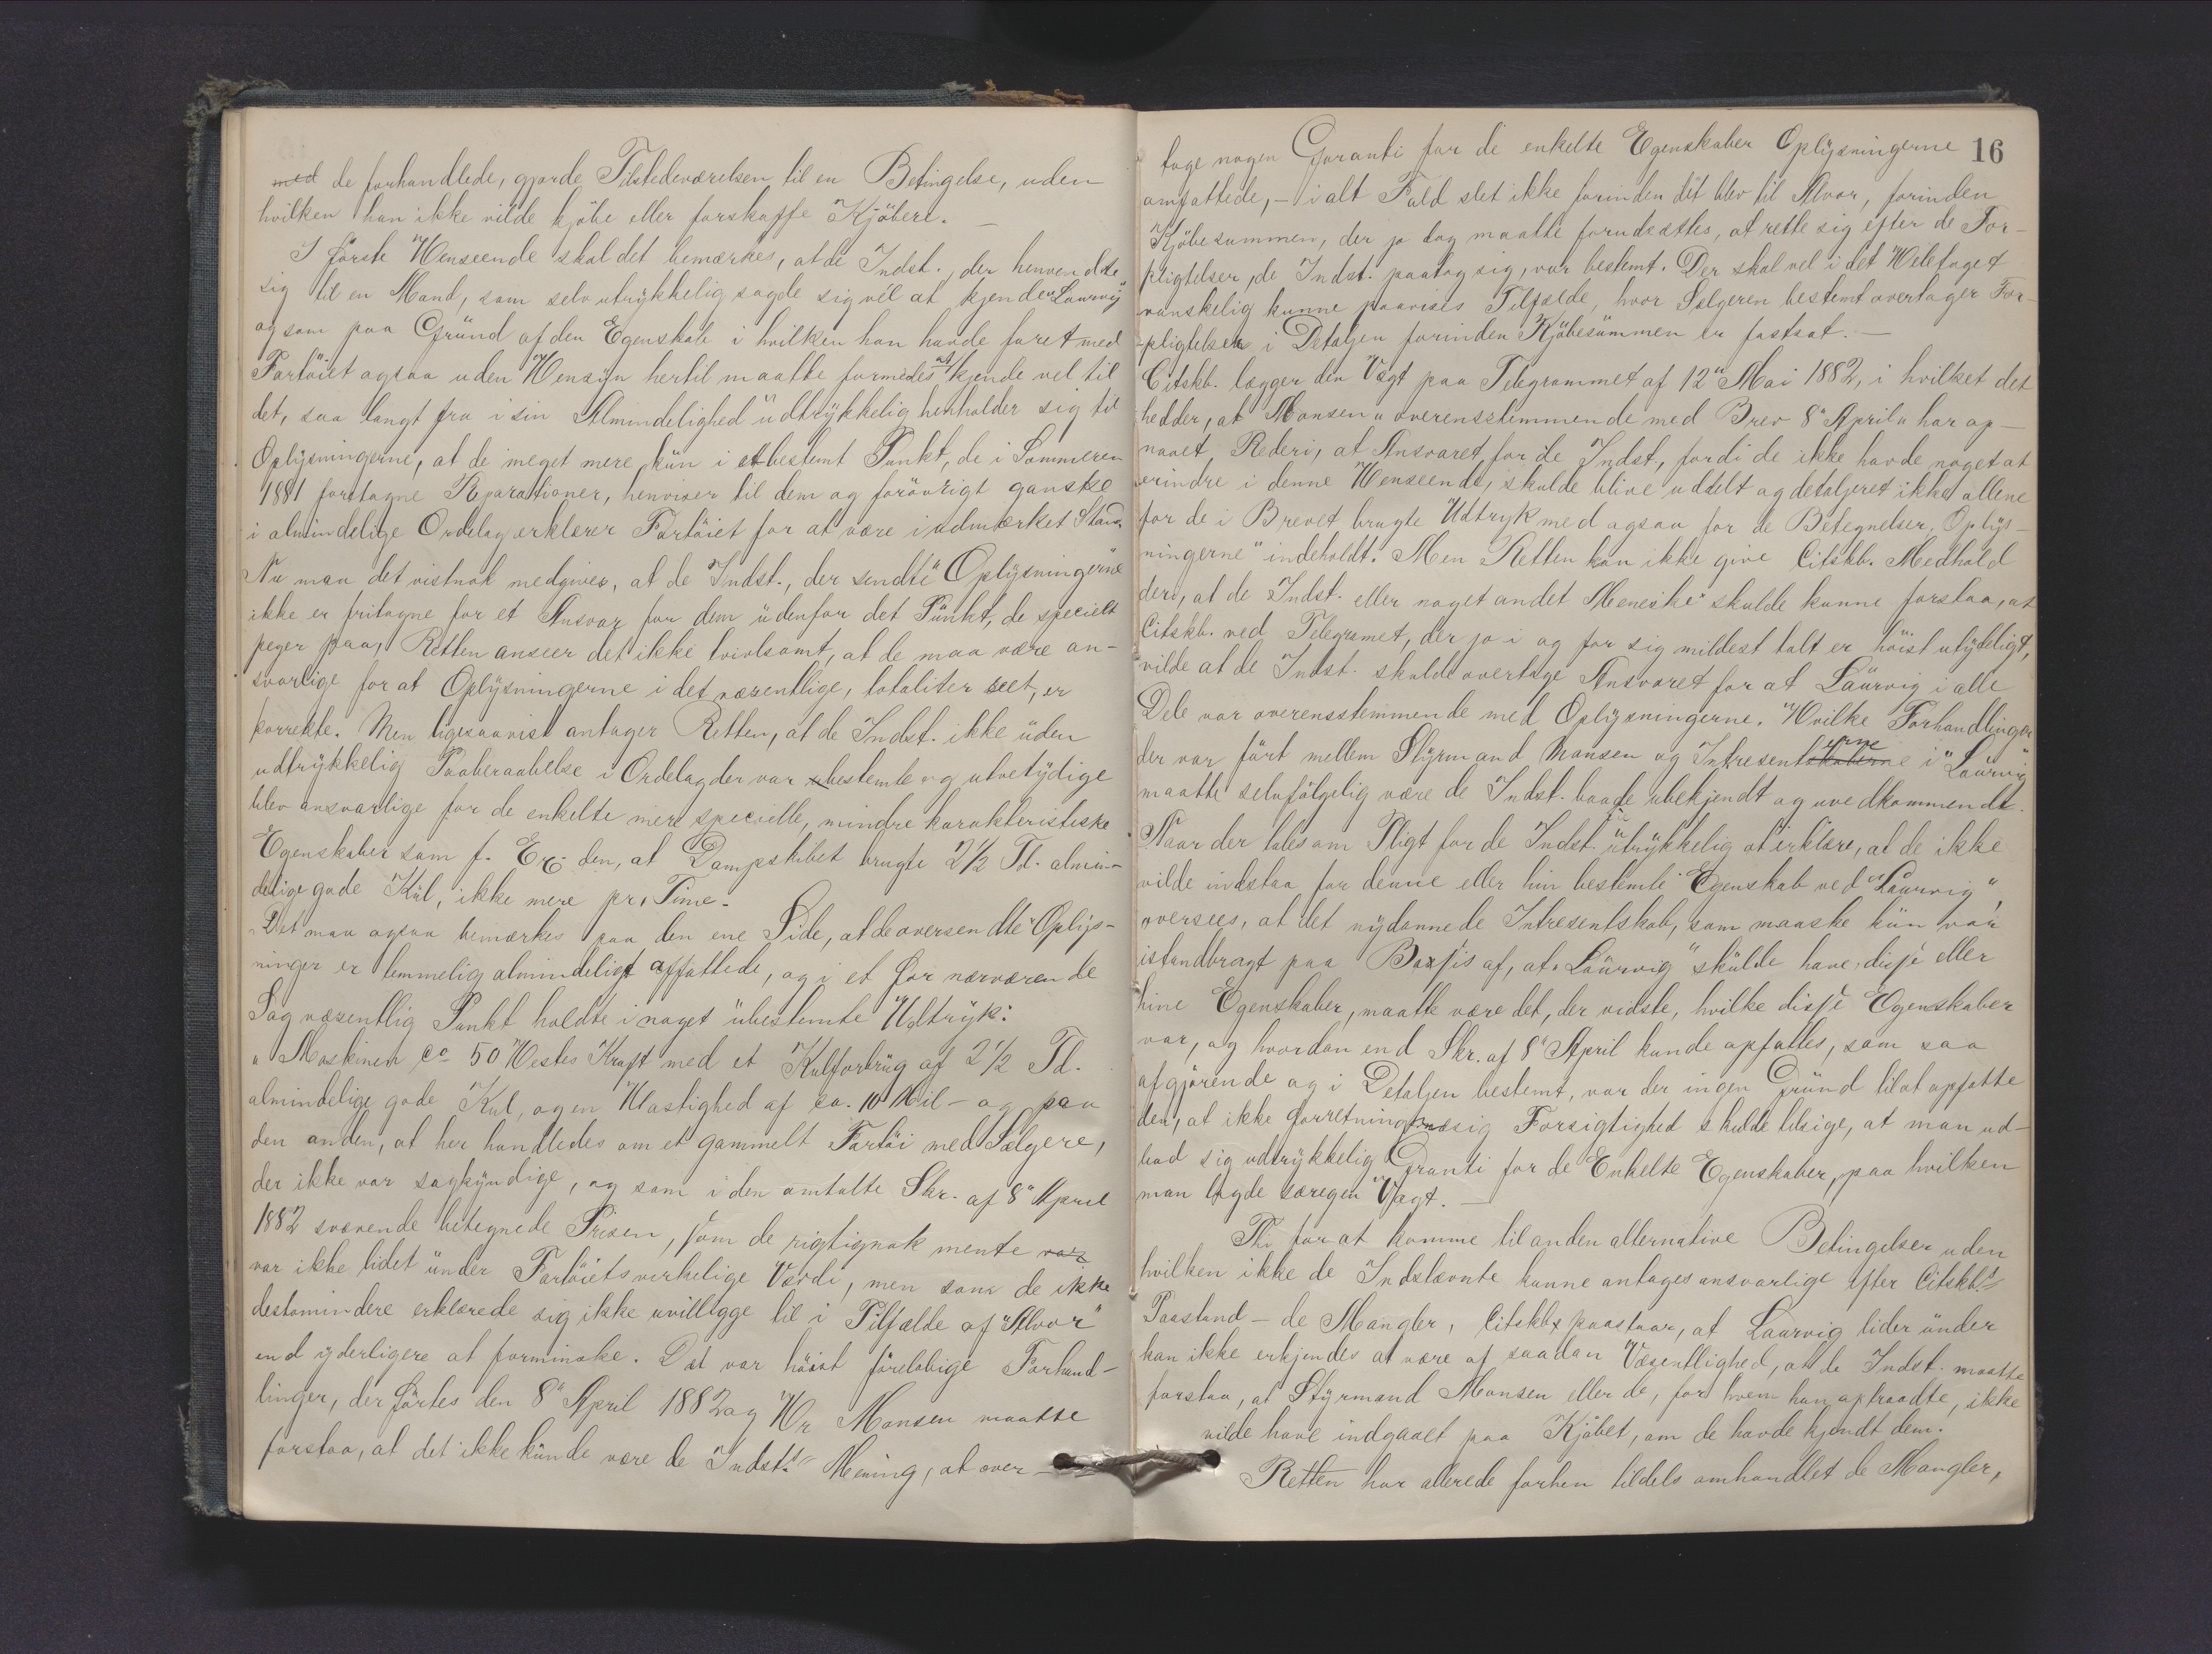 med de forhandlede, gjorde Tilstedeværelsen til en Betingelse, uden
hvilken han ikke vilde kjöbe eller forskaffe Kjöbere. —
I förste Henseende skal det bemærkes, at de Indst., der henvendte
sig til en Mand, som selv utrykkelig sagde sig vel at kjende "Laurvig"
og som paa Grund af den Egenskab i hvilken han havde faret med
Fartöiet ogsaa uden Hensyn hertil maatte formodes at kjende vel til
det, saa langt fra i sin Almindelighed udtrykkelig henholder sig til
Oplysningerne, at de meget mere kun i et bestemt Punkt, de i Sommeren
1881 foretagne Reparationer, henviser til dem og forövrigt ganske
i almindelige Ordelag erklærer Fartöiet for at være i udmærket Stand.
Nu maa det vistnok medgives, at de Indst., der sendte "Oplysningerne"
ikke er fritagne for et Ansvar for dem udenfor det Punkt, de specielt
peger paa, Retten anseer det ikke tvivlsomt, at de maa være an-
svarlige for at Oplysningerne i det væsentlige, totaliter seet, er
korrekte. Men ligesaavist antager Retten, at de Indst. ikke uden
udtrykkelig Paaberaabelse i Ordelag der var bestemte og utvetydige
blev ansvarlige for de enkelte mere specielle, mindre karakteristiske
Egenskaber som f. Ex. den, at Dampskibet brugte 2½ Td. almin-
delige gode Kul, ikke mere pr. Time.
Det maa ogsaa bemærkes paa den ene Side, at de oversendte "Oplys-
ninger er temmelig almindeligt affattede, og i et for nærværende
Sag væsentlig Punkt holdte i noget ubestemte Udtryk:
"Maskinen co 50 Hestes Kraft med et Kulforbrug af 2½ Td.
almindelige gode Kul, og en Hastighed af ca. 10 Mil – og paa
den anden, at her handledes om et gammelt Fartöi med Sælgere,
der ikke var sagkyndige, og som i den omtalte Skr. af 8de April
1882 svævende betegnede Prisen, som de rigtignok mente var
var ikke lidet under Fartöiets virkelige Værdi, men som de ikke
destomindere erklærede sig ikke uvilligge til i Tilfælde af "Alvor"
end yderligere at forminske. Det var höist forelöbige Forhand-
linger, der förtes den 8de April 1882 og Hr Monsen maatte
forstaa, at det ikke kunde være de Indst.s Mening, at over-
16
tage nogen Garanti for de enkelte Egenskaber Oplysningerne
omfattede, – i alt Fald slet ikke forinden det blev til Alvor, forinden
Kjöbesummen, der jo dog maatte forudsættes, at rette sig efter de For-
pligtelser, de Indst. paatog sig, var bestemt. Der skal vel i det Heletaget
vanskelig kunne paavises Tilfælde, hvor Sælgeren bestemt overtager For-
pligtelser i Detaljen forinden Kjöbesummen er fastsat. —
Citskb. lægger den Vægt paa Telegrammet af 12te Mai 1882, i hvilket det
hedder, at Monsen "overensstemmende med Brev 8de April" har op-
naaet Rederi, at Ansvaret for de Indst., fordi de ikke havde noget at
erindre i denne Henseende, skulde blive uddelt og detaljeret ikke allene
for de i Brevet brugte Udtryk med ogsaa for de Betegnelser, "Oplys-
ningerne" indeholdt. Men Retten kan ikke give Citskb. Medhold
deri, at de Indst. eller noget andet Meneske skulde kunne forstaa, at
Citskb. ved Telegramet, der jo i og for sig mildest talt er höist utydeligt,
vilde at de Indst. skulde overtage Ansvaret for at Laurvig i alle
Dele var overensstemmende med Oplysningerne. Hvilke Forhandlinger
der var fört mellem Styrmand Monsen og Intresentskaberne erne i "Laurvig"
maatte selvfölgelig være de Indst. baade ubekjendt og uvedkommende.
Naar der tales om Pligt for de Indst. utrykkelig at erklære, at de ikke
vilde indstaa for denne eller hin bestemte Egenskab ved "Laurvig",
oversees, at det nydannede Intresentskab, som maaske kun var
istandbragt paa Basis af, at "Laurvig" skulde have disse eller
hine Egenskaber, maatte være det, der vidste, hvilke disse Egenskaber
var, og hvordan end Skr. af 8de April kunde opfattes, som saa
afgjörende og i Detaljen bestemt, var der ingen Grund til at opfatte
den, at ikke forretningsmæsig Forsigtighed skulde tilsige, at man ud-
bad sig udtrykkelig Granti for de Enkelte Egenskaber, paa hvilken
man lagde særegen Vægt. —
Thi for at komme til anden alternative Betingelser uden
hvilken ikke de Indstævnte kunne antages ansvarlige efter Citskb.s
Paastand – de Mangler, Citskb. paastaar, at Laurvig lider under
kan ikke erkjendes at være af saadan Væsentlighed, at de Indst. maatte
forstaa, at Styrmand Monsen eller de, for hvem han optraadte, ikke
vilde have indgaaet paa Kjöbet, om de havde kjendt dem.
Retten har allerede forhen tildels omhandlet de Mangler,